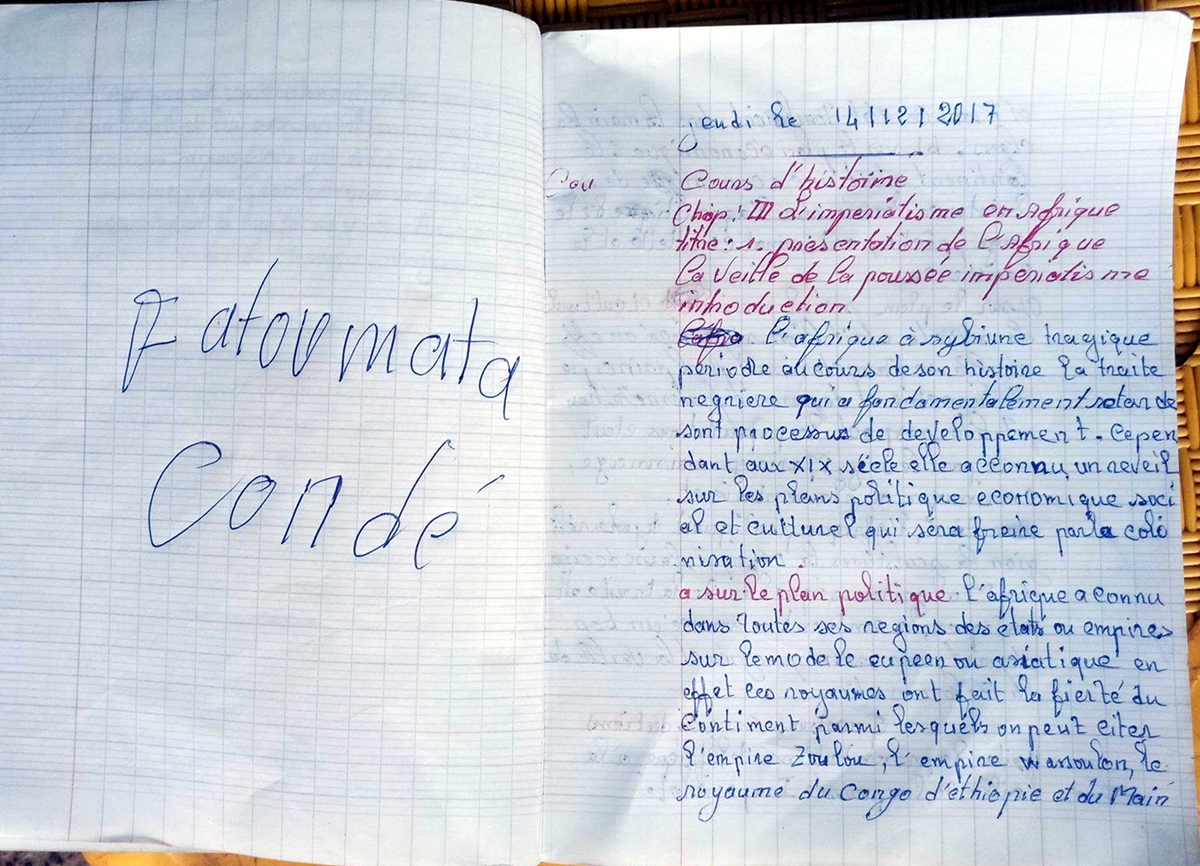 Fatoumata
Condé
jeudi le 14 | 12 | 2017
Cou
Cours d'histoire
Chap: III L'imperialisme en Afrique
titre: 1. présentation de l'Afrique
la veille de la poussée imperialisme
introduction.
l'afrique à sybiune tragique
période au cours de son histoire la traite
negriere qui a fondamentalement retarde
sont processus de developpement. Cepen
dant aux XIX sécle elle a connu un reveil
sur les plans politique economique soci
al et culturel qui séra freine par la colo
nisation.
a sur le plan politique l'afrique a connu
dans toutes ses regions des états ou empires
sur le modele eupeen ou asiatique en
effet ces royaumes ont fait la fierté du
Contiment parmi lesquels on peut citer
l'empire Zoulou, l'empire wassoulon, le
royaume du Congo d'éthiopie et du Main